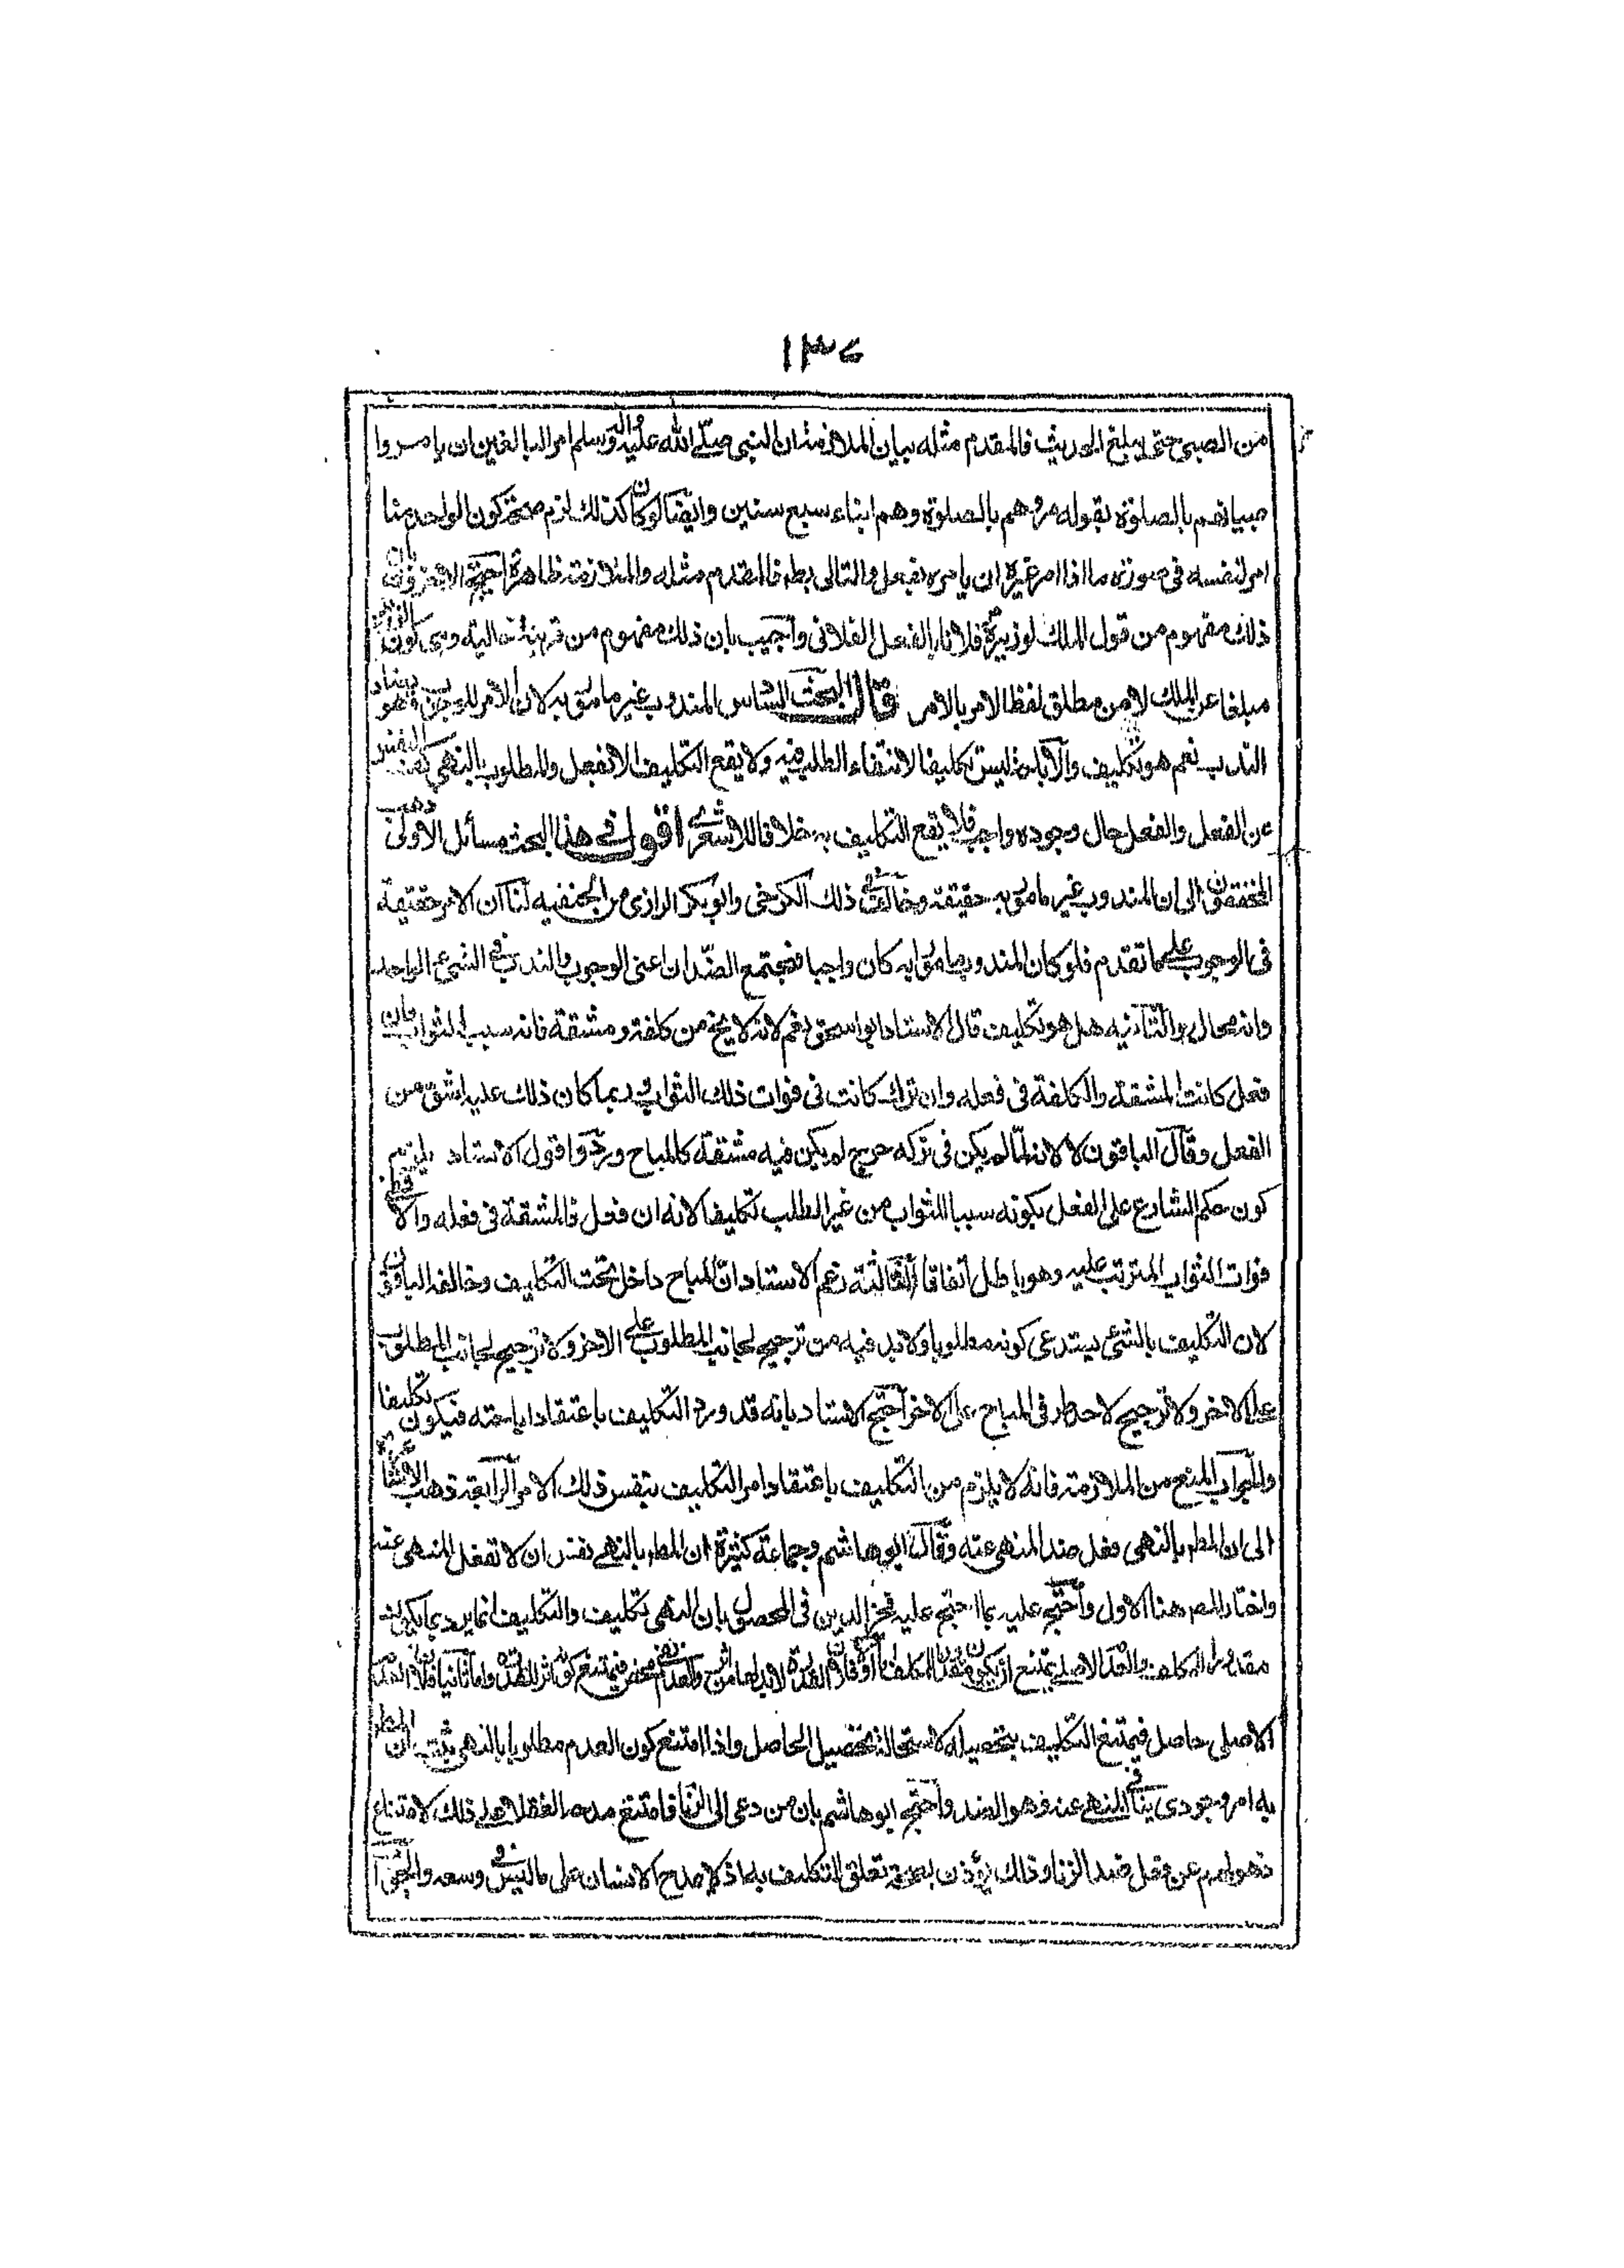 ١٣٤
من الصبي حتى يبلغ الحديث فالمقدم مثله بيان الملازمة ان النبي صلى الله عليه واله وسلم امر البالغين ان يامروا
صبيانهم بالصلوة بقوله مروهم بالصلوة وهم ابناء سبع سنين وايضا لو كان كذلك لزم صحة كون الواحد منا
امر لنفسه في صورة ما اذا امر غيره ان يامره بفعل والتالي بط فالمقدم مثله والملازمة ظاهرة احتج الاخرون بان
ذلك مفهوم من قول الملك لوزيره مر فلانا بالفعل الفلاني واجيب بان ذلك مفهوم من قرينة وهي كون الوزير
مبلغا عن الملك لا من مطلق لفظ الامر بالامر قال البحث السادس المندوب غير مامور به لان الامر للوجوب وهو ينافي
الندب نعم هو تكليف والاباحة ليس تكليفا لانتفاء الطلب فيه ولا يقع التكليف الا بفعل والمطلوب بالنهي كف النفس
عن الفعل والفعل حال وجوده واجب فلا يقع التكليف به خلافا للاشعري اقول في هذا البحث مسائل الاولى ذهب
المحققون الى ان المندوب غير مامور به حقيقة وخالف في ذلك الكرخي وابوبكر الرازي من الحنفيه لنا ان الامر حقيقة
في الوجوب على ما تقدم فلو كان المندوب مامورا به كان واجبا فيجتمع الضدان اعني الوجوب والندب في الشيء الواحد
وانه محال الثانيه هل هو تكليف قال الاستاد ابو اسحق نعم لانه لا يخ من كلفة ومشقة فانه سبب للثواب فان
فعل كانت المشقة والكلفة في فعله وان ترك كانت في فوات ذلك الثواب وربما كان ذلك عليه اشق من
الفعل وقال الباقون لا لانه لما لم يكن في تركه حرج لم يكن فيه مشقة كالمباح وردوا قول الاستاد يلزم
كون حكم الشارع على الفعل بكونه سببا للثواب من غير الطلب تكليفا لانه ان فعل فالمشقة في فعله والا ففي
فوات الثواب المترتب عليه وهو باطل اتفاقا الثالثة زعم الاستاد ان المباح داخل تحت التكليف وخالفه الباقون
لان التكليف بالشيء يستدعي كونه مطلوبا ولا بد فيه من ترجيح لجانب المطلوب على الاخر ولا ترجيح لجانب المطلوب
على الاخر ولا ترجيح لاحد طرفي المباح على الاخر احتج الاستاد بانه قد ورد التكليف باعتقاد اباحته فيكون تكليفا
والجواب المنع من الملازمة فانه لا يلزم من التكليف باعتقاد امر التكليف بنفس ذلك الامر الرابعة ذهب الاشاعرة
الى ان المط بالنهي فعل ضد المنهي عنه وقال ابو هاشم وجماعة كثيرة ان المط بالنهي نفس ان لا تفعل المنهي عنه
واختار المص هنا الاول واحتج عليه بما احتج عليه فخر الدين في المحصول بان النهي تكليف والتكليف انما يرد بما يكون
مقدورا للمكلف والعدم الاصلي يمتنع ان يكون مقدورا للمكلف اما اولا فلان القدرة لا بد لها من اثر والعدم نفي محض فيمتنع كونه اثرا للقدرة واما ثانيا فلان العدم
الاصلي حاصل فيمتنع التكليف بتحصيله لاستحالة تحصيل الحاصل واذا امتنع كون العدم مطلوبا بالنهي ثبت ان المط
به امر وجودي ينافي المنهي عنه وهو الضد واحتج ابو هاشم بان من دعي الى الزنا فامتنع مدحه العقلاء على ذلك الامتناع
ذهولهم عن فعل ضد الزنا وذلك يؤذن بصحة تعلق التكليف به اذ لا يمدح الانسان على ما ليس في وسعه والجواب